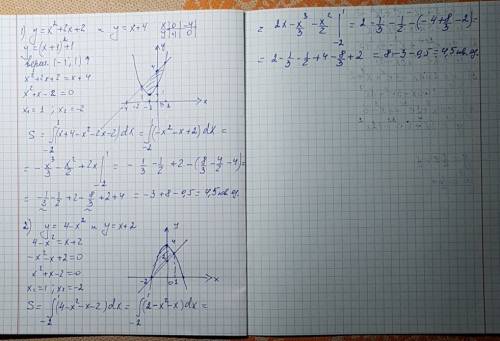 1) y = x² + 2x + 2 и y = x + 4 x | 0 | -4 |
y = (x+1)² + 1 y | 4 | 0 |
верш (-1; 1) ↑
x² + 2x + 2 = x + 4
x² + x - 2 = 0
x₁ = 1 ; x₂ = -2
y
4
-4 -2 -1 0 1 x
S = ∫₋₂¹ (x + 4 - x² - 2x - 2) dx = ∫₋₂¹ (-x² - x + 2) dx =
= - x³/3 - x²/2 + 2x |₋₂¹ = - 1/3 - 1/2 + 2 - (8/3 - 4/2 - 4) =
= - 1/3 - 1/2 + 2 - 8/3 + 2 + 4 = -3 + 8 - 0,5 = 4,5 кв. ед.
2) y = 4 - x² и y = x + 2
4 - x² = x + 2
-x² - x + 2 = 0
x² + x - 2 = 0
x₁ = 1 ; x₂ = -2
y
4
-2 0 1 2 x
S = ∫₋₂¹ (4 - x² - x - 2) dx = ∫₋₂¹ (2 - x² - x) dx =
= 2x - x³/3 - x²/2 |₋₂¹ = 2 - 1/3 - 1/2 - (-4 + 8/3 - 2) =
= 2 - 1/3 - 1/2 + 4 - 8/3 + 2 = 8 - 3 - 0,5 = 4,5 кв. ед.